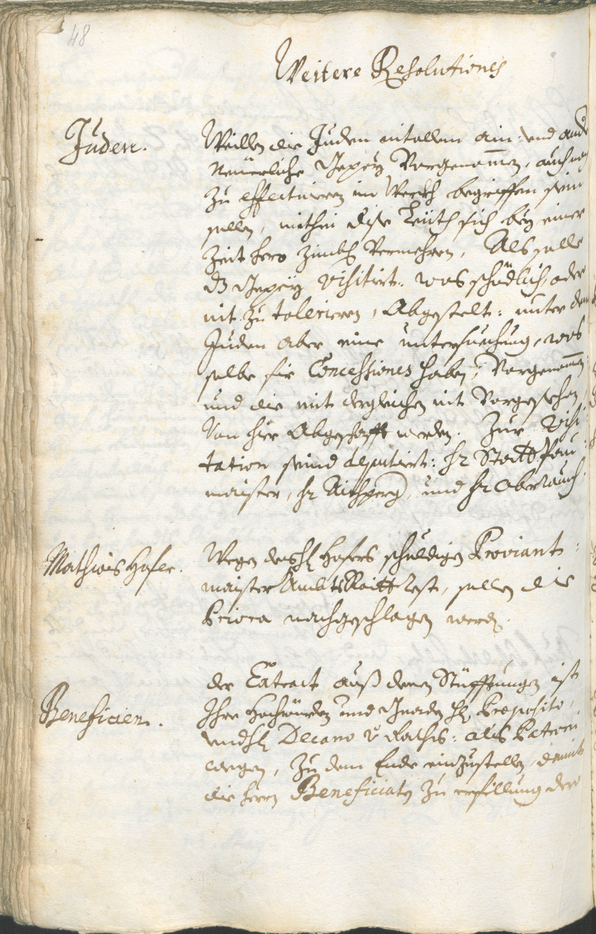 48
Weitere Resolutiones
Juden.
Weillen die Juden ent allem ain: und and
Neuerliche Vorgenomen, auch noch
Zu effectuieren im Werckh begriffen sein
sollen, mithin dise Leuth sich bey einer
Zeit hero Zimbl. Vermehren, Als solle
visitirt: was schädlich oder
nit zu tolerieren, Abgestelt: unter den
Juden aber eine untersuechung, was
selbe für Concessiones haben, Vorgenomen
und die mit dergleichen nit Vorgesehen
Von hier Abgeschafft werden. Zur Visi
tation seind deputirt: Hr Statt Pau
maister, Hr, und Hr Oberrauch.
Mathias Hofer.
Wegen Hofers schuldigen Proviant
maister Ambts Raitt Rest, sollen die
Priora nachgeschlagen werden.
Beneficien.
der Extract auß denen Stüfftungen ist
Ihro Hochwürden und Gnaden H. Preposito,
Decano als Patroni
wegen, Zu dem Ende einzustellen, damit
die Herrn Beneficiaten Zu erfillung derer